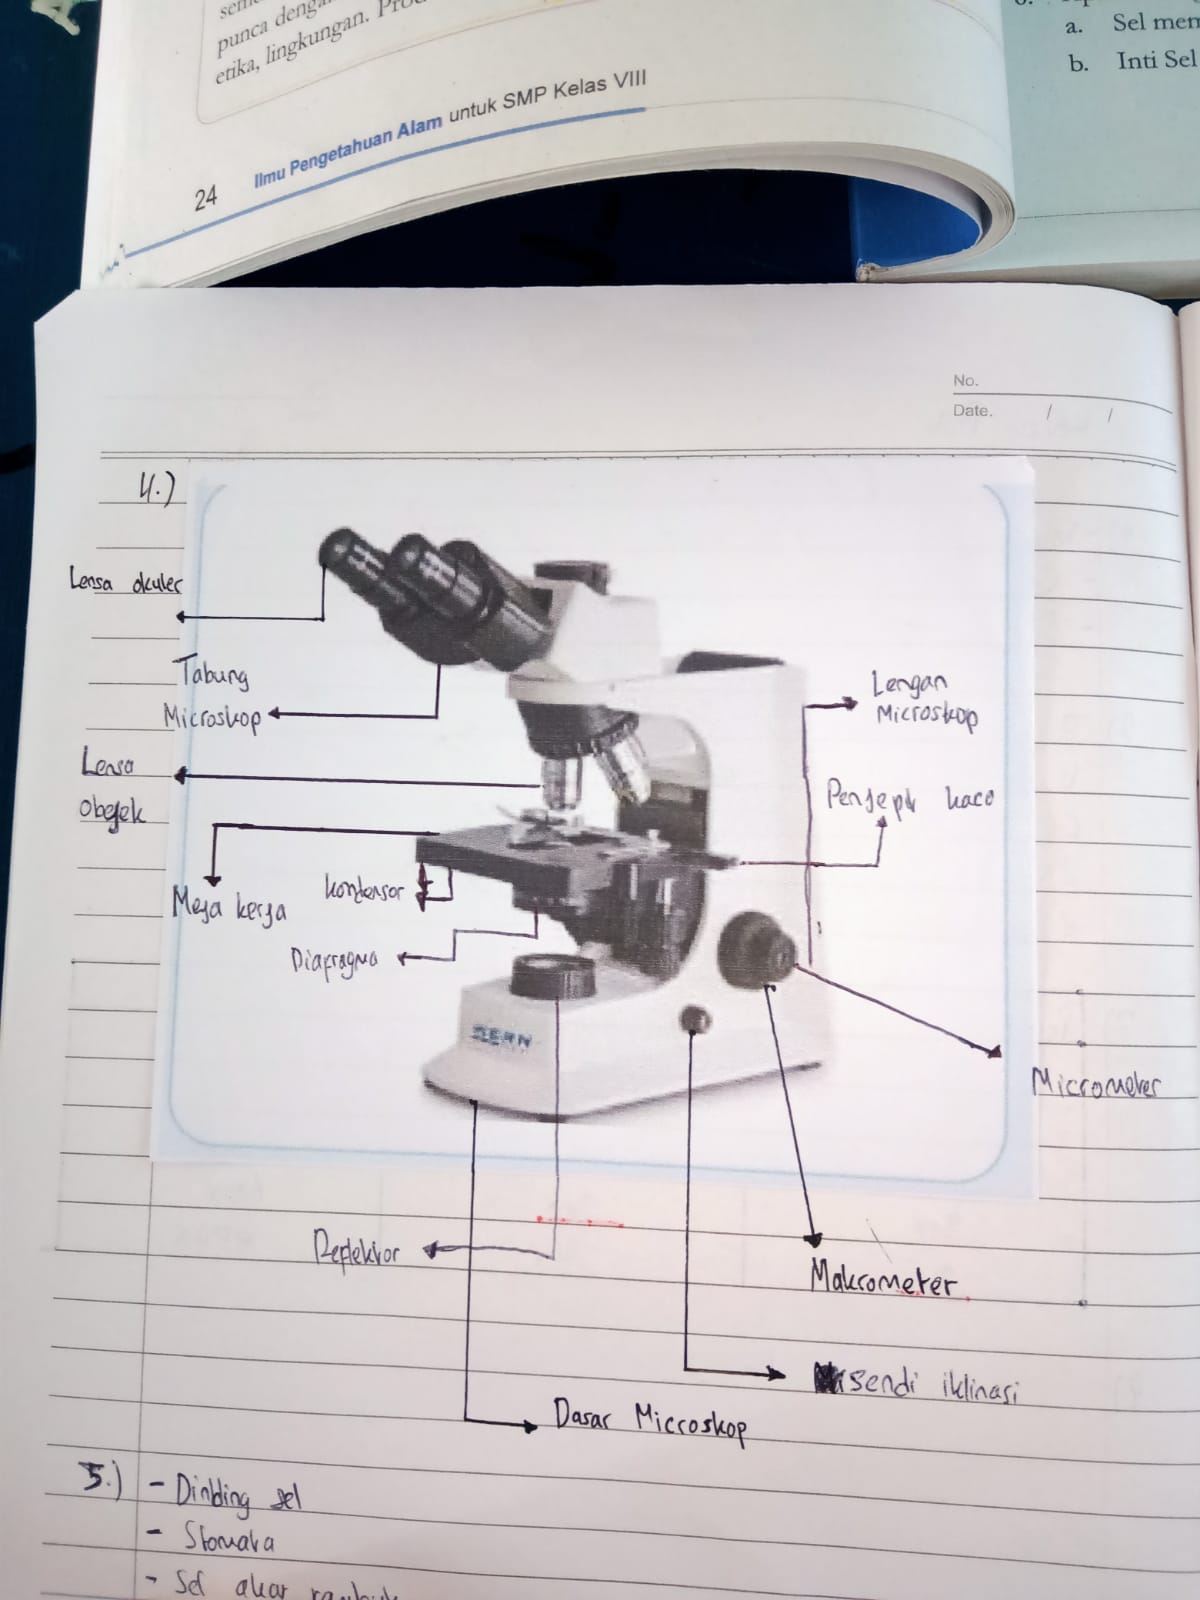 punca denga
etika, lingkungan. Pro
24 Ilmu Pengetahuan Alam untuk SMP Kelas VIII
a. Sel mem
b. Inti Sel
No.
Date. / /
4.)
Lensa okuler
Tabung
Microskop
Lensa
Obejek
Meja kerja
kondensor
Diafragma
Lengan
Microskop
Penjepit kaca
Micrometer
Reflektor
Makrometer
sendi iklinasi
Dasar Microskop
5.) - Dinding sel
- Stomata
- Sel akar